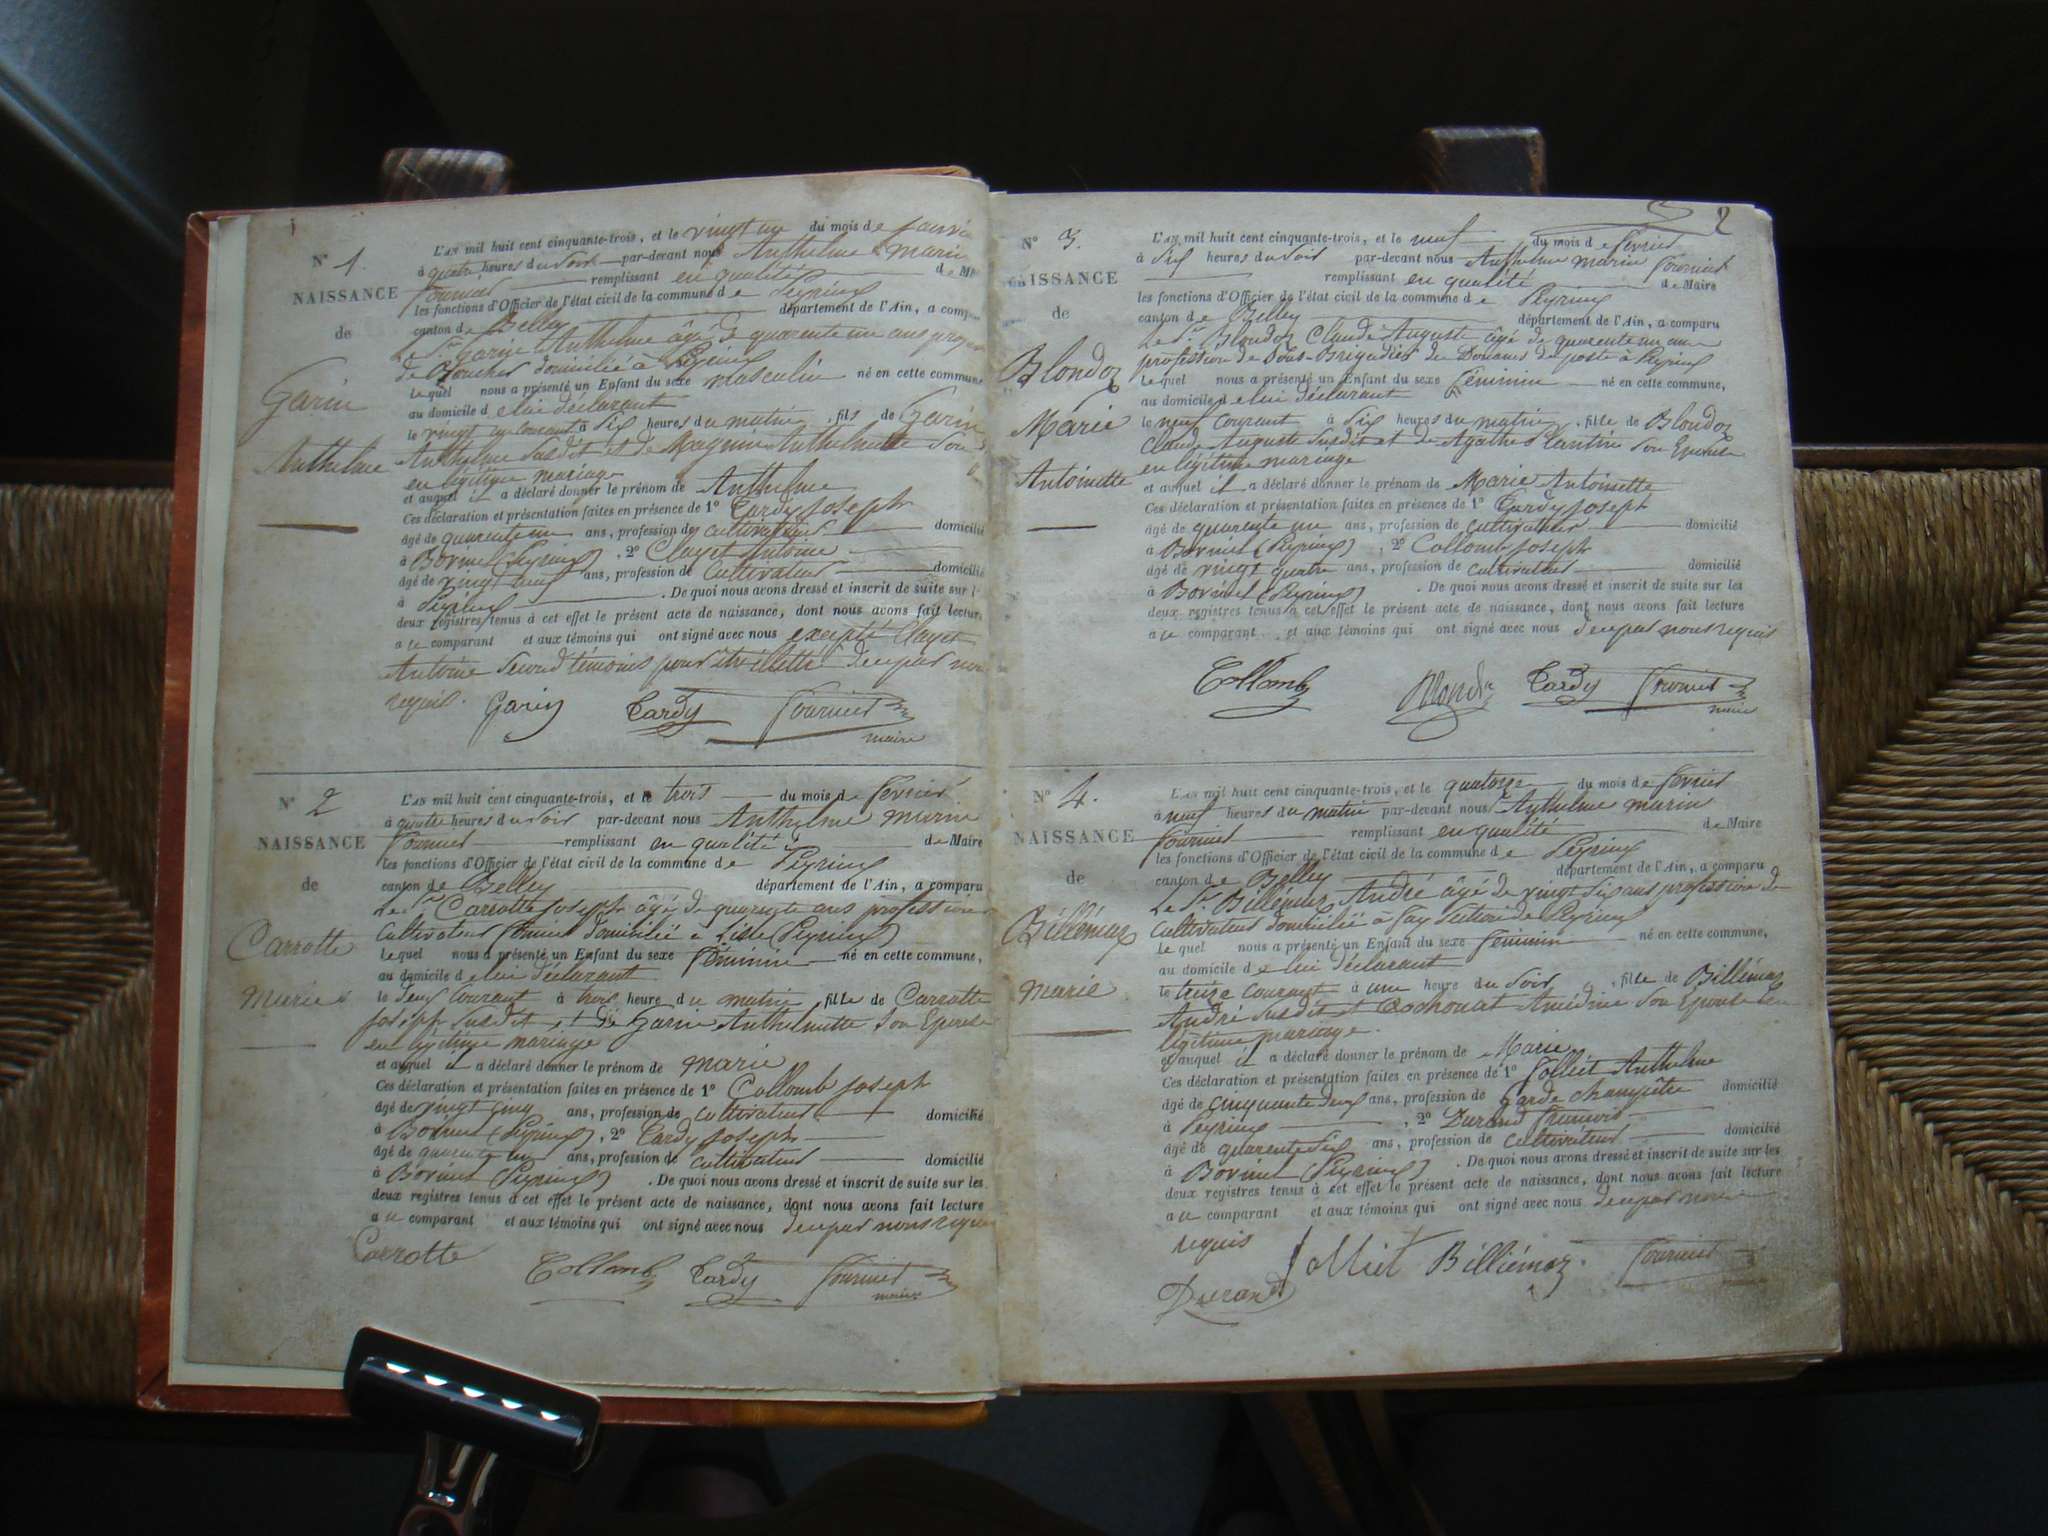 1
N° 1.
NAISSANCE
de
Garin
Anthelme
L'AN mil huit cent cinquante-trois, et le vingt un du mois de Janvier
à quatre heures du Soir par-devant nous Anthelme Marin
Fournier remplissant en qualité de M
les fonctions d'Officier de l'état civil de la commune de Peyrieux
canton de Belley département de l'Ain, a comparu
le Sr Garin Anthelme âgé de quarente un ans profes
de domicilié à Peyrieux
lequel nous a présenté un Enfant du sexe masculin né en cette commune
au domicile de lui déclarant
le vingt un courant à six heures du matin, fils de Garin
Anthelme susdit et de Magnin Anthelmette son
en légitime mariage
et auquel il a déclaré donner le prénom de Anthelme
Ces déclaration et présentation faites en présence de 1° Tardy Joseph
âgé de quarente un ans, profession de cultivateur domicilié
à Borinet (Peyrieux), 2° Clayet Antoine
âgé de vingt neuf ans, profession de Cultivateur domicilié
à Peyrieux. De quoi nous avons dressé et inscrit de suite sur l
deux registres tenus à cet effet le présent acte de naissance, dont nous avons fait lecture
a ce comparant et aux témoins qui ont signé avec nous excepté Clayet
Antoine second témoins pour être illettré de ce par nous
requis. Garin Tardy Fournier
maire
N° 2
NAISSANCE
de
Carrotte
Marie
L'AN mil huit cent cinquante-trois, et le trois du mois de février
à quatre heures du Soir par-devant nous Anthelme marin
Fournier remplissant en qualité de Maire
les fonctions d'Officier de l'état civil de la commune de Peyrieux
canton de Belley département de l'Ain, a comparu
Le Sr Carrotte Joseph âgé de quarente ans profession
Cultivateur domicilié à Lisle (Peyrieux)
lequel nous a présenté un Enfant du sexe féminin né en cette commune,
au domicile de lui déclarant
le deux courant à trois heure du matin fille de Carrotte
Joseph susdit et de Garin Anthelmette son Epouse
en légitime mariage
et auquel il a déclaré donner le prénom de marie
Ces déclaration et présentation faites en présence de 1° Collomb Joseph
âgé de vingt cinq ans, profession de cultivateur domicilié
à Borinet (Peyrieux), 2° Tardy Joseph
âgé de quarente un ans, profession de cultivateur domicilié
à Borinet (Peyrieux). De quoi nous avons dressé et inscrit de suite sur les
deux registres tenus à cet effet le présent acte de naissance, dont nous avons fait lecture
a ce comparant et aux témoins qui ont signé avec nous de ce par nous requis
Carrotte Collomb Tardy Fournier
maire
2
N° 3.
NAISSANCE
de
Blondoz
Marie
Antoinette
L'AN mil huit cent cinquante-trois, et le neuf du mois de février
à six heures du Soir par-devant nous Anthelme marin Fournier
remplissant en qualité de Maire
les fonctions d'Officier de l'état civil de la commune de Peyrieux
canton de Belley département de l'Ain, a comparu
Le Sr Blondoz Claude Auguste âgé de quarente un ans
profession de Sous-Brigadier de Douanes de poste à Peyrieux
lequel nous a présenté un Enfant du sexe féminin né en cette commune,
au domicile de lui déclarant
le neuf courant à six heures du matin, fille de Blondoz
Claude Auguste susdit et de Agathe son Epouse
en légitime mariage
et auquel il a déclaré donner le prénom de Marie Antoinette
Ces déclaration et présentation faites en présence de 1° Tardy Joseph
âgé de quarente un ans, profession de cultivateur domicilié
à Borinet (Peyrieux), 2° Collomb Joseph
âgé de vingt quatre ans, profession de cultivateur domicilié
à Borinet (Peyrieux). De quoi nous avons dressé et inscrit de suite sur les
deux registres tenus à cet effet le présent acte de naissance, dont nous avons fait lecture
a ce comparant et aux témoins qui ont signé avec nous de ce par nous requis
Collomb Blondoz Tardy Fournier
maire
N° 4.
NAISSANCE
de
Billémaz
Marie
L'AN mil huit cent cinquante-trois, et le quatorze du mois de février
à neuf heures du matin par-devant nous Anthelme marin
Fournier remplissant en qualité de Maire
les fonctions d'Officier de l'état civil de la commune de Peyrieux
canton de Belley département de l'Ain, a comparu
Le Sr Billémaz André âgé de vingt six ans profession de
cultivateur domicilié à Fay section de Peyrieux
lequel nous a présenté un Enfant du sexe féminin né en cette commune,
au domicile de lui déclarant
le treize courant à une heure du Soir, fille de Billémaz
André susdit et Cochonat son Epouse en
légitime mariage.
et auquel il a déclaré donner le prénom de Marie
Ces déclaration et présentation faites en présence de 1° Jolliet Anthelme
âgé de cinquante deux ans, profession de Garde champêtre domicilié
à Peyrieux, 2° Durand François
âgé de quarente six ans, profession de cultivateur domicilié
à Borinet (Peyrieux). De quoi nous avons dressé et inscrit de suite sur les
deux registres tenus à cet effet le présent acte de naissance, dont nous avons fait lecture
a ce comparant et aux témoins qui ont signé avec nous de ce par nous
requis Jolliet Billiémaz. Fournier
Durand